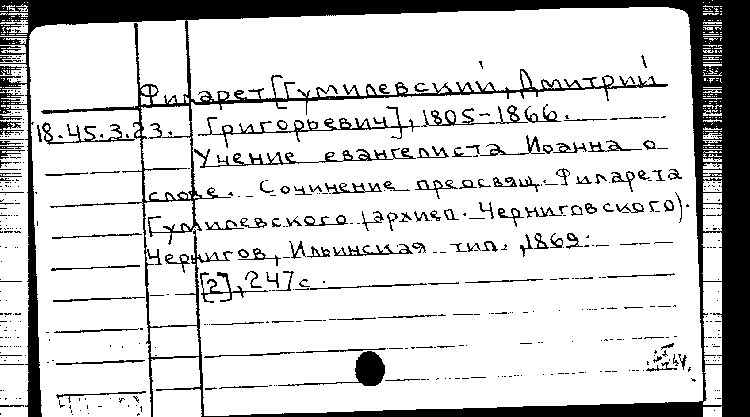 Филарет [Гумилевский, Дмитрий
18.45.3.23. Григорьевич], 1805-1866.
Учение евангелиста Иоанна о
слове. Сочинение преосвящ. Филарета
Гумилевского (архиеп. Черниговского).
Чернигов, Ильинская тип., 1869.
[2], 247 с.